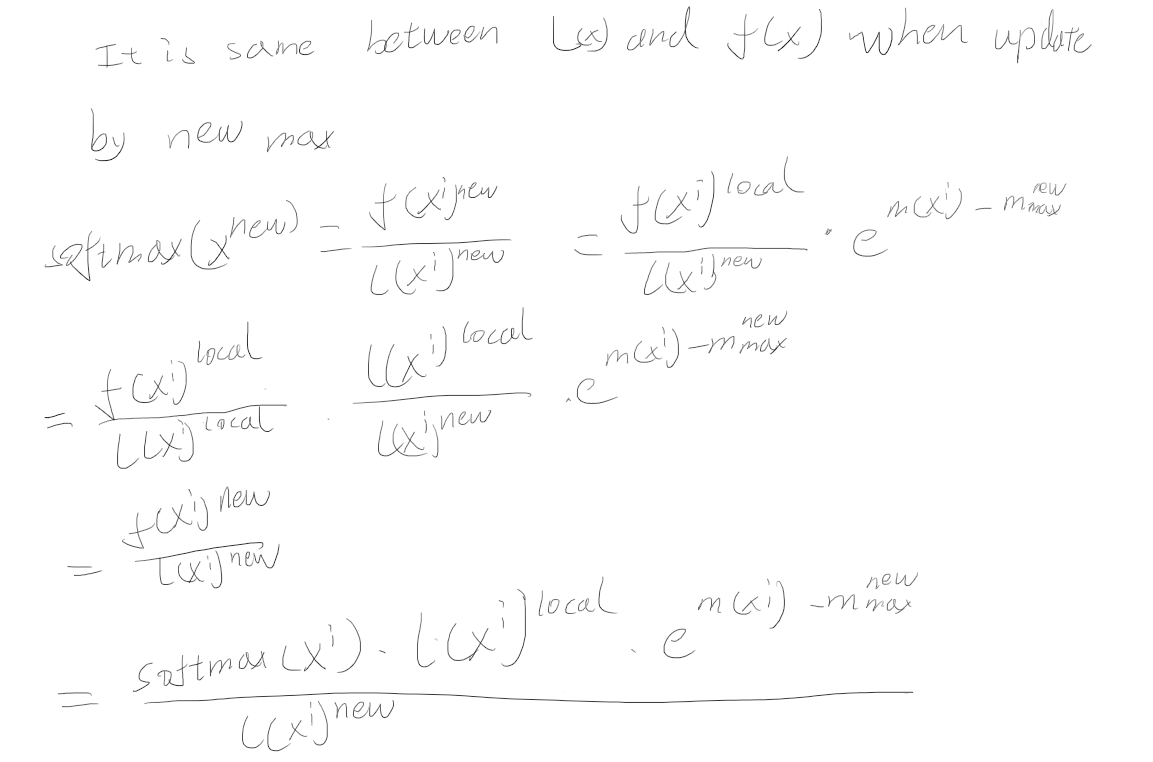 It is same between l(x) and f(x) when update
by new max
softmax(x^{new}) = \frac{f(x^i)^{new}}{l(x^i)^{new}} = \frac{f(x^i)^{local}}{l(x^i)^{new}} \cdot e^{m(x^i) - m_{max}^{new}}
= \frac{f(x^i)^{local}}{l(x^i)^{local}} \cdot \frac{l(x^i)^{local}}{l(x^i)^{new}} \cdot e^{m(x^i) - m_{max}^{new}}
= \frac{f(x^i)^{new}}{l(x^i)^{new}}
= \frac{softmax(x^i) \cdot l(x^i)^{local} \cdot e^{m(x^i) - m_{max}^{new}}}{l(x^i)^{new}}